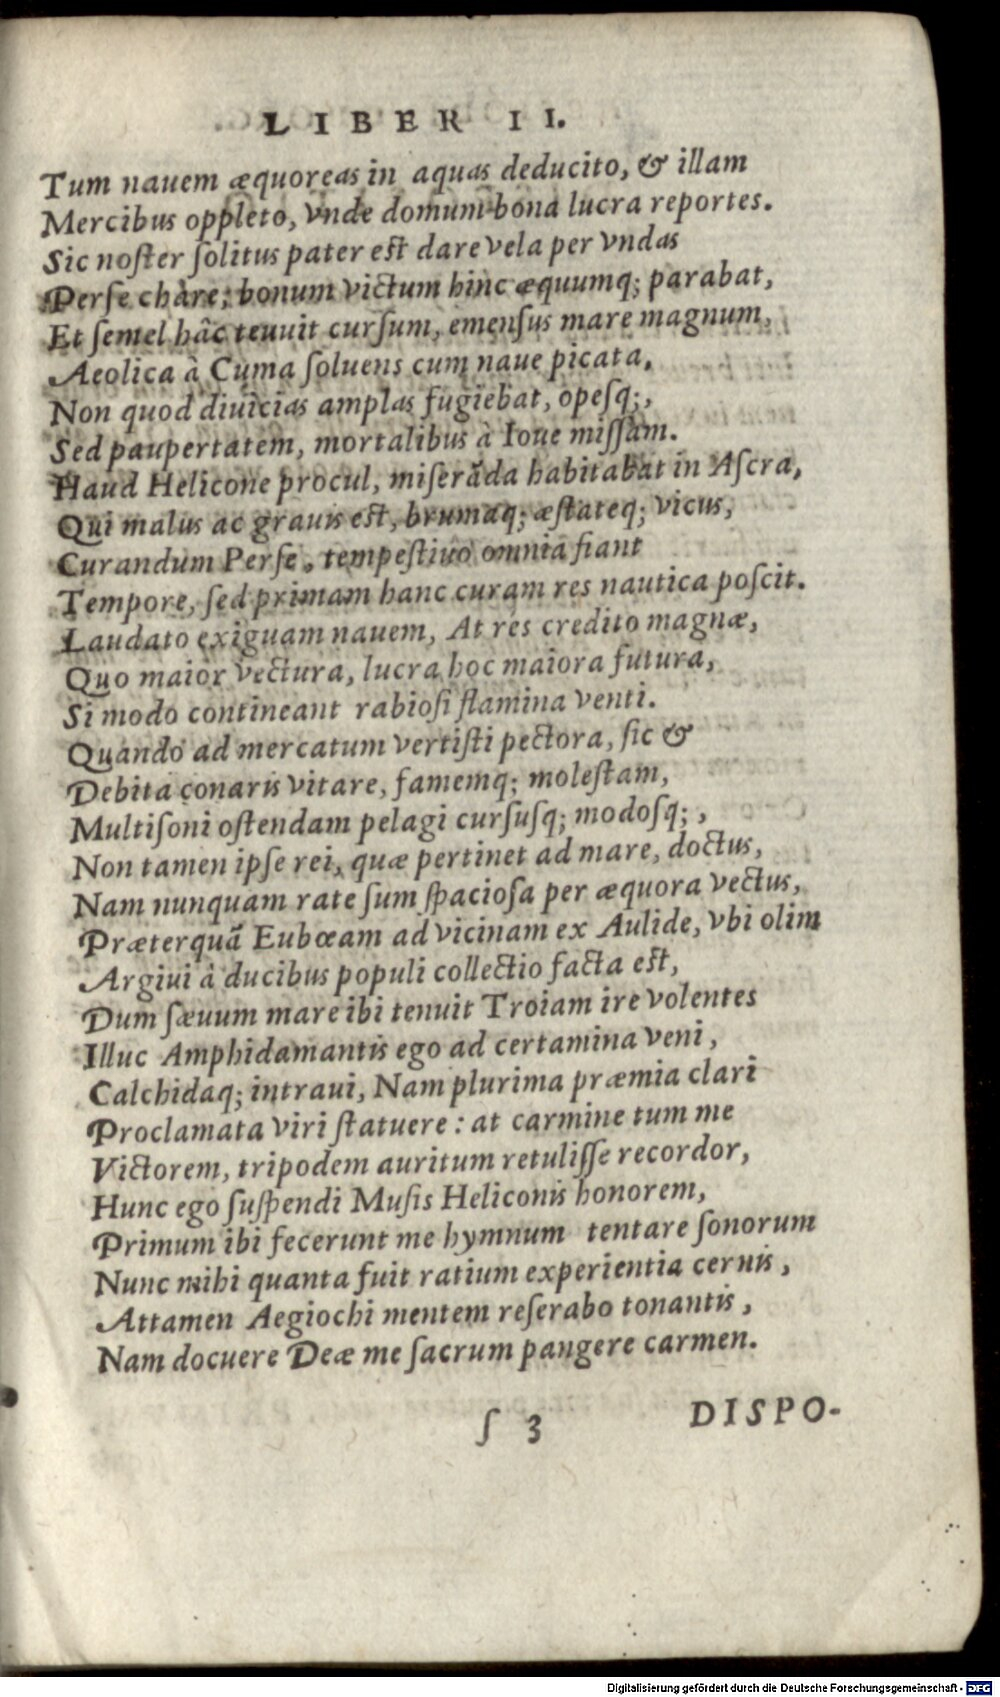 LIBER II.
Tum nauem æquoreas in aquas deducito, & illam
Mercibus oppleto, vnde domum bona lucra reportes.
Sic noſter ſolitus pater eſt dare vela per vndas
Perſe chàre; bonum victum hinc æquumq; parabat,
Et ſemel hâc tenuit curſum, emenſus mare magnum,
Aeolica à Cuma ſoluens cum naue picata,
Non quod diuicias amplas fugiebat, opeſq;,
Sed paupertatem, mortalibus à Ioue miſſam.
Haud Helicone procul, miſerãda habitabat in Aſcra,
Qui malus ac grauis eſt, brumaq; æſtateq; vicus,
Curandum Perſe, tempeſtiuo omnia fiant
Tempore, ſed primam hanc curam res nautica poſcit.
Laudato exiguam nauem, At res credito magnæ,
Quo maior vectura, lucra hoc maiora futura,
Si modo contineant rabioſi flamina venti.
Quando ad mercatum vertiſti pectora, ſic &
Debita conaris vitare, famemq; moleſtam,
Multiſoni oſtendam pelagi curſuſq; modoſq;,
Non tamen ipſe rei, quæ pertinet ad mare, doctus,
Nam nunquam rate ſum ſpacioſa per æquora vectus,
Præterquã Eubœam ad vicinam ex Aulide, vbi olim
Argiui à ducibus populi collectio facta eſt,
Dum ſæuum mare ibi tenuit Troiam ire volentes
Illuc Amphidamantis ego ad certamina veni,
Calchidaq; intraui, Nam plurima præmia clari
Proclamata viri ſtatuere: at carmine tum me
Victorem, tripodem auritum retuliſſe recordor,
Hunc ego ſuſpendi Muſis Heliconis honorem,
Primum ibi fecerunt me hymnum tentare ſonorum
Nunc mihi quanta fuit ratium experientia cernis,
Attamen Aegiochi mentem reſerabo tonantis,
Nam docuere Deæ me ſacrum pangere carmen.
ſ 3 DISPO-
Digitalisierung gefördert durch die Deutsche Forschungsgemeinschaft - DFG